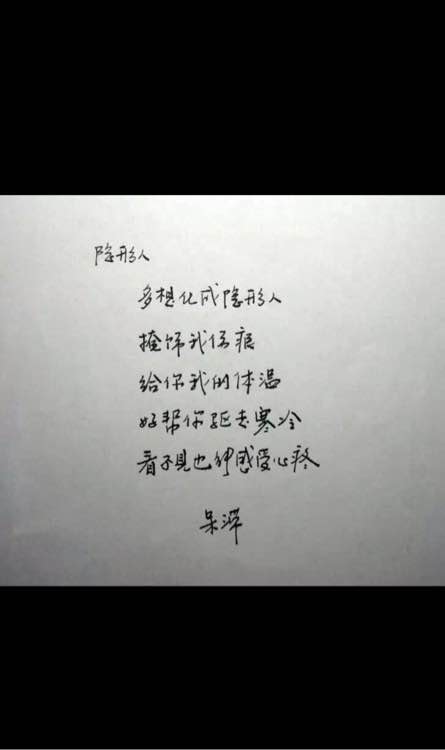 隐形人
多想化成隐形人
掩饰我伤痕
给你我的体温
好帮你驱去寒冷
看不见也能感受心疼
呆泽